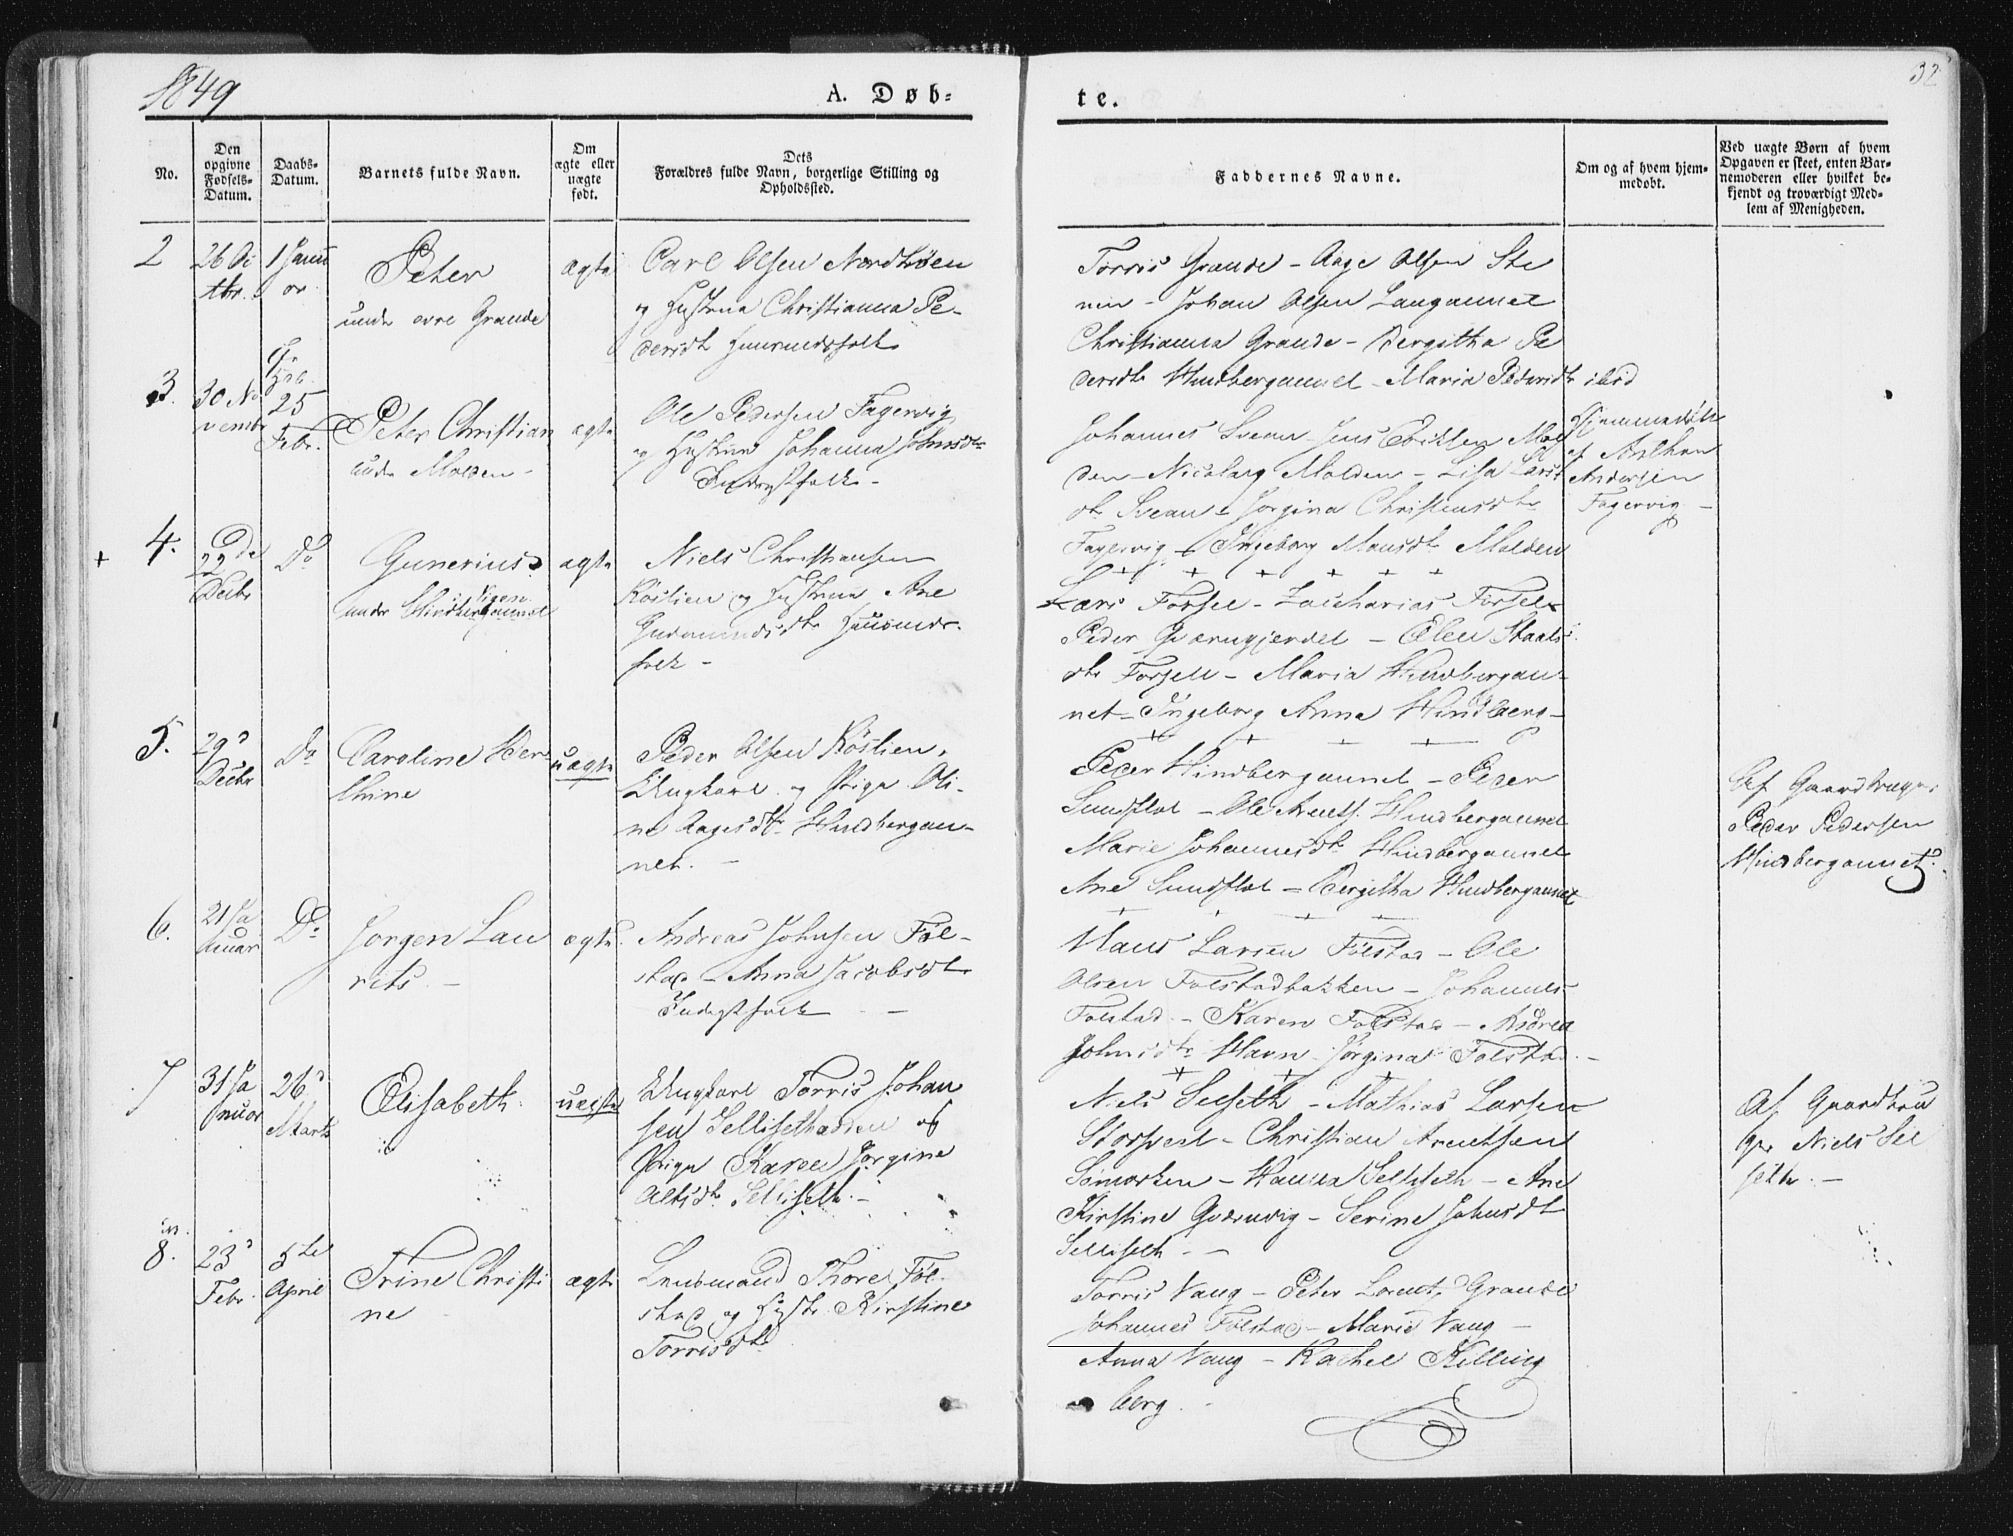 1849
A. Døb=
te.
32
No.
Den opgivne Fødsels-Datum.
Daabs-Datum.
Barnets fulde Navn.
Om ægte eller uægte født.
Dets Forældres fulde Navn, borgerlige Stilling og Opholdssted.
Faddernes Navne.
Om og af hvem hjem-
medøbt.
Ved uægte Børn af hvem
Opgaven er skeet, enten Bar-
nemoderen eller hvilket be-
kjendt og troværdigt Med-
lem af Menigheden.
2
26
1 Janu
ar
Peter
under øvre Grande
ægte
Carl Olsen Nordtrøen
og Hustrue Christianna Pe-
dersdtr Huusmandsfolk
Torris Grande - Aage Olsen Ste
nin - Johan Olsen Langaunet
Christianna Grande - Bergitha Pe
dersdtr Hindbergaunet - Maria Pedersdtr ibid
3.
30 No
vembr
25
Febr.
Peter Christian
under Molden -
ægte
Ole Pedersen Fagervig
og Hustrue Johanna Johnsdtr
Inderstfolk -
Johannes Svean - Jens Mol
den - Nicolay Molden - Lisa Lars
dtr Svean - Jørgina Christensdtr
Fagervig - Ingeborg Monsdtr Molden
Hjemmedøbt
af
Andersen
Fagervig -
4.
+
22de
Decbr
Do
Gunerius
under Hindbergaunet
ægte
Niels Christiansen
Röstien og Hustrue Ane
Gudmundsdtr Huusmds-
folk -
Lars Forsel - Zacharias Forsel
Peder Qværngjerdet - Elen Staals
dtr Forsell - Maria Hindbergau-
net - Ingeborg Anna Hindberg-
5.
29d
Decbr
Do
Caroline Ber-
thine
uægte
Peder Olsen Röstien,
Ungkarl og Pige Oli-
ne Aagesdtr Hindbergau-
net. -
Peder Hindbergaunet - Peder
Sundflot - Ole Arents. Hindbergaunet
Marie Johannesdtr Hindbergaunet
Ane Sundflot - Bergitha Hindbergaunet
Af Gaardbruger
Peder Pedersen
Hindbergaunet.
6.
21 Ja
nuar
Do
Jørgen Lau
rits. -
ægte.
Andreas Johnsen Føl-
stad - Anna Jacobsdtr
Inderstfolk -
Hans Larsen Følstad - Ole
Olsen Følstadbakken - Johannes
Følstad - Karen Følstad - Andrea
Johnsdtr Havn - Jørgina Følstad. -
7
31 Ja
nuar
26d
Marts
Elisabeth.
uægte
Ungkarl Torris Johan
sen Sellisethødden og
Pige Karen Jørgine
Altsdtr Selliseth. -
Niels Selseth - Mathias Larsen
Storsvedt - Christian Arentsen
Sømorken - Hanna Selliseth - Ane
Kirstine Qvernvig - Serine Johnsdtr
Selliseth - -
Af Gaardbru
ger Niels Sel
seth. -
8.
23d
Febr.
5te
April
Trine Christi
ne
ægte
Lensmand Thore Føl-
stad og Hustr. Kirstine
Torrisdtr
Torris Vang - Peter Lorents. Grande
Johannes Følstad - Marie Vang -
Anna Vang - Rachel Killing
berg. -